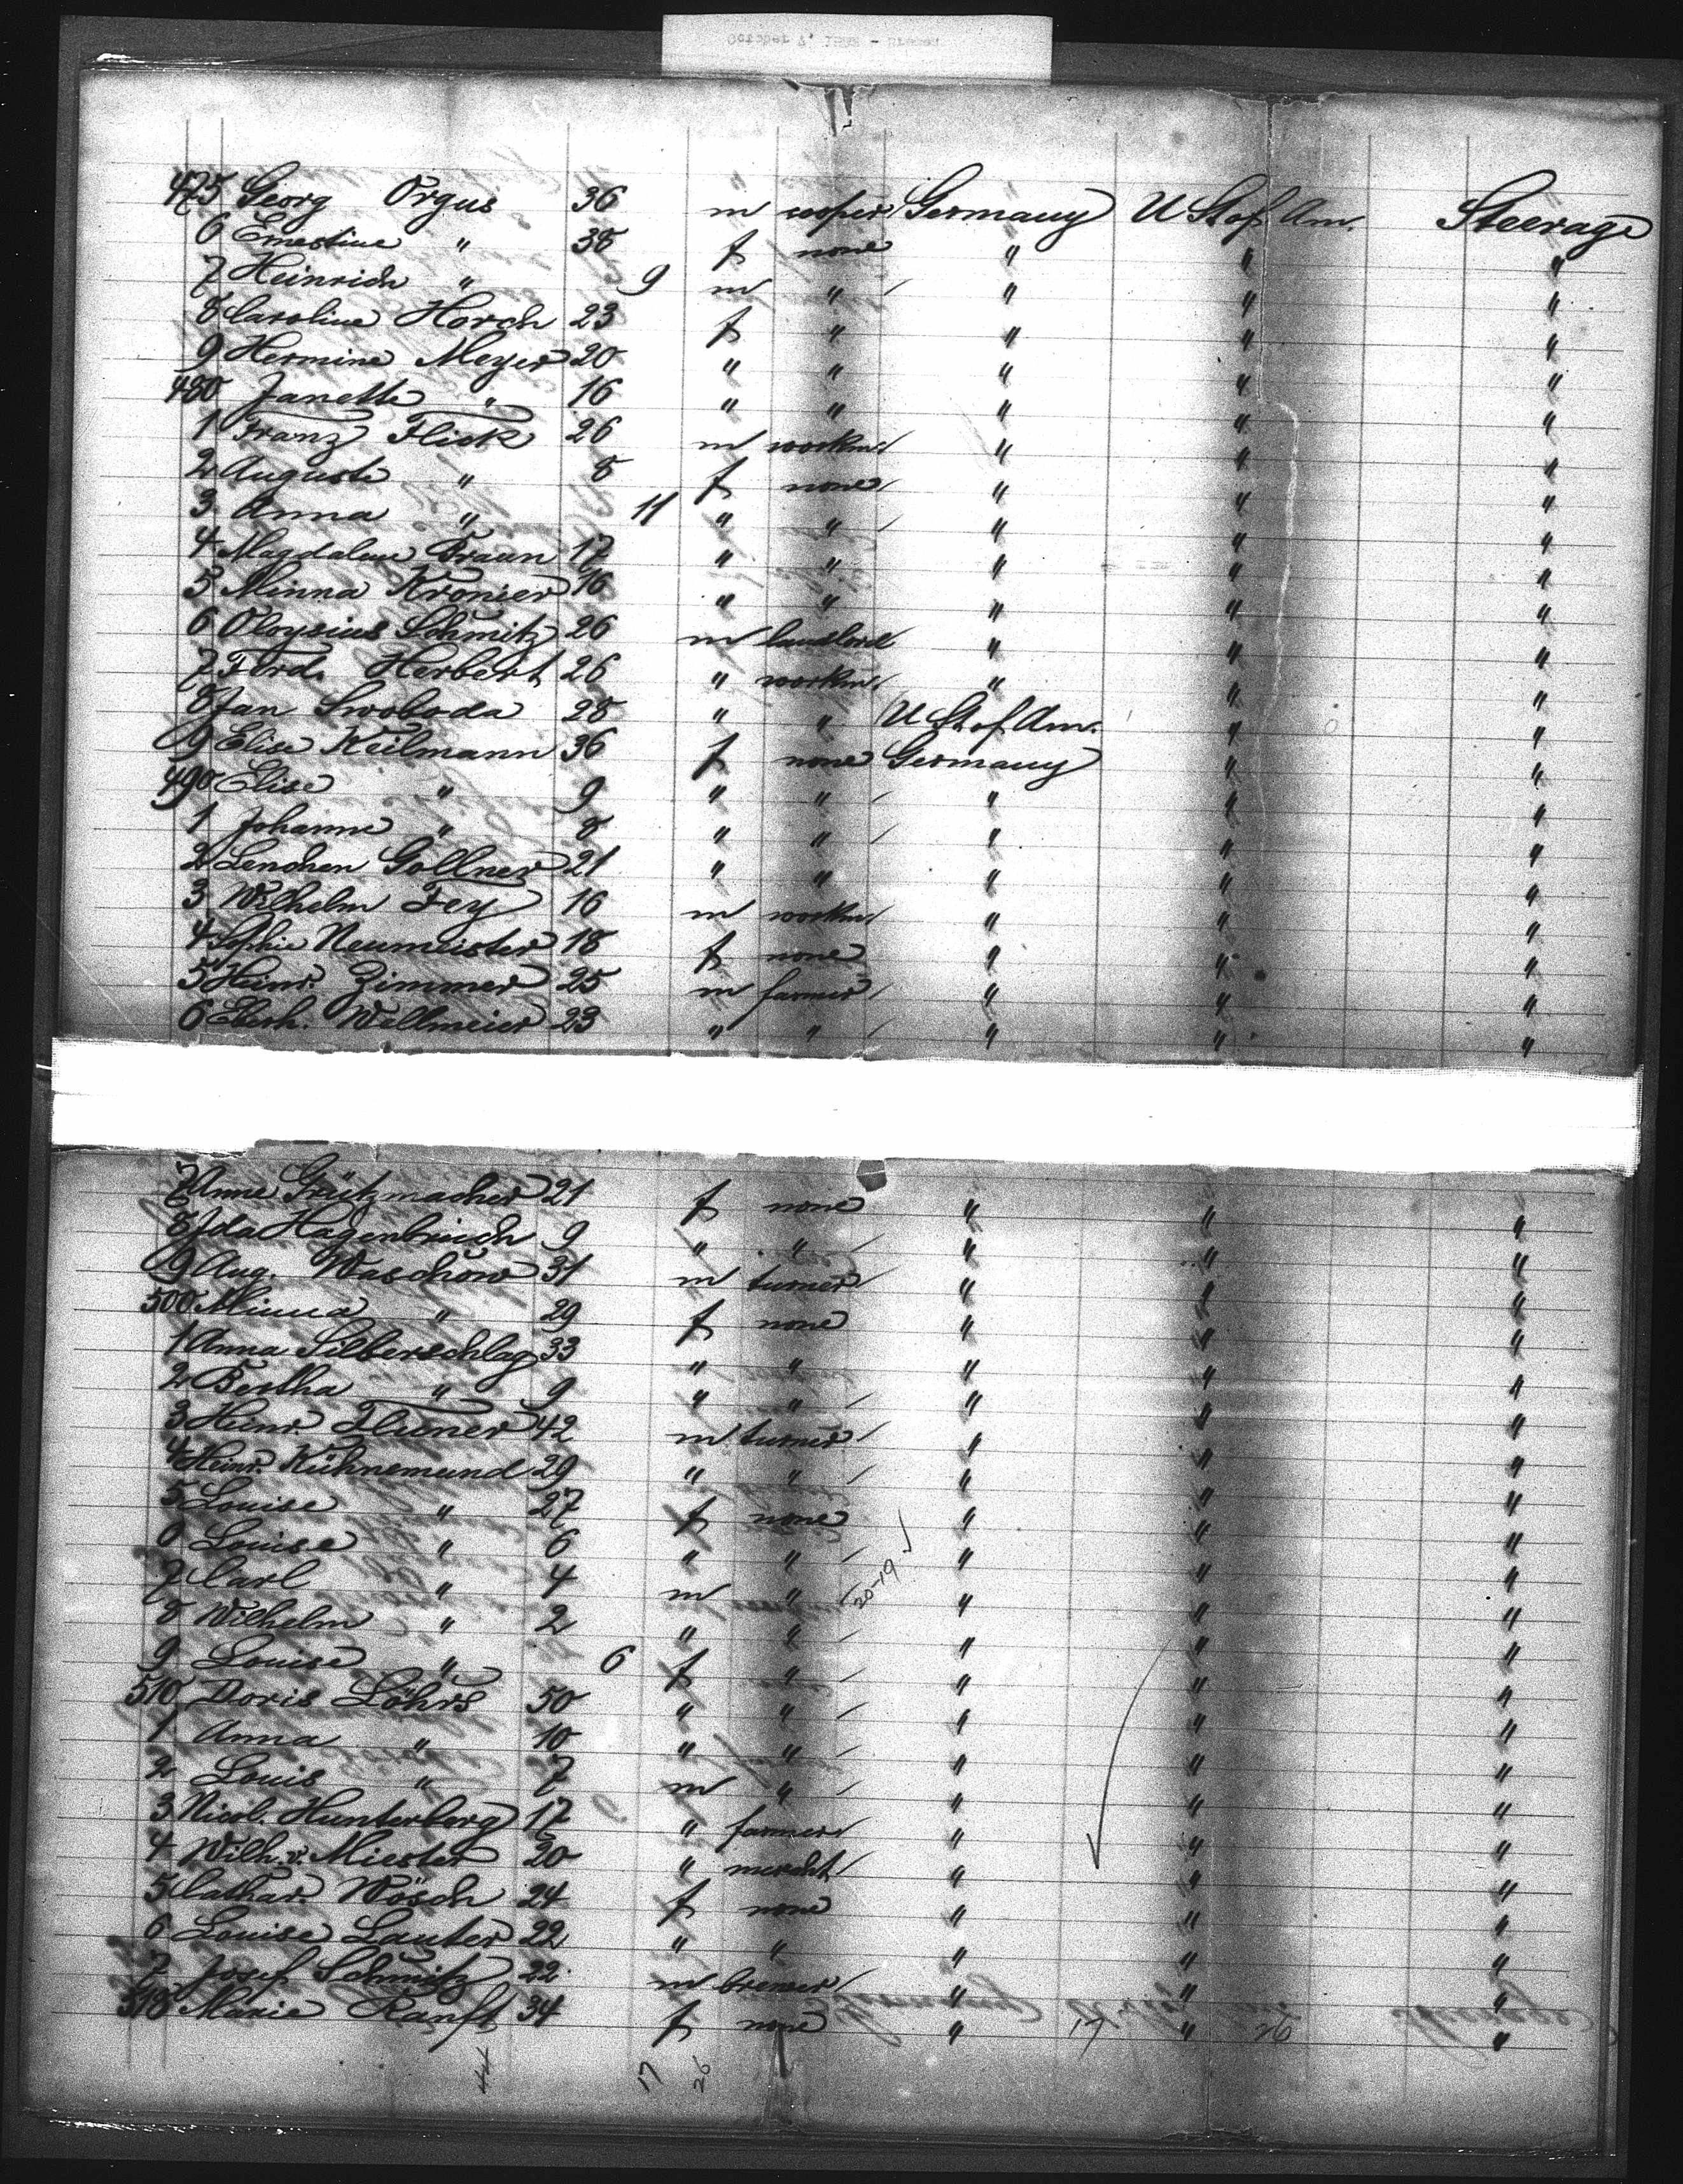 475 Georg Orgus 36 m cooper Germany U St of Am. Steerage
6 Ernestine " 38 f none " " "
7 Heinrich " 9 m " " " "
8 Caroline Horch 23 f " " " "
9 Hermine Meyer 20 " " " " "
480 Janette " 16 " " " " "
1 Franz Flick 26 m workm " " "
2 Auguste " 8 f none " " "
3 Anna " 11 " " " " "
4 Magdalene Braun 17 " " " " "
5 Minna Kronier 16 " " " " "
6 Oloysius Schmitz 26 m landlord " " "
7 Ferd. Herbert 26 " workm. " " "
8 Jan Swoboda 28 " " U St of Am. " "
9 Elise Keilmann 36 f none Germany " "
490 Elise " 9 " " " " "
1 Johanne " 8 " " " " "
2 Lenchen Gollner 21 " " " " "
3 Wilhelm Fey 16 m workm " " "
4 Sophie Neumeister 18 f none " " "
5 Heinr. Zimmer 25 m farmer " " "
6 Eberh. Wallmeier 23 " " " " "
7 Anne Grützmacher 21 f none " " "
8 Ida Hagenbruch 9 " " " " "
9 Aug. Waschow 31 m turner " " "
500 Minna " 29 f none " " "
1 Anna Silberschlag 33 " " " " "
2 Bertha " 9 " " " " "
3 Heinr. 42 m turner " " "
4 Heinr. Kühnemund 29 " " " " "
5 Louise " 27 f none " " "
6 Louise " 6 " " " " "
7 Carl " 4 m " 20-19 " " "
8 Wilhelm " 2 " " " " "
9 Louise " 6 f " " " "
510 Doris Löhrs 50 " " " " "
1 Anna " 10 " " " " "
2 Louis " 7 m " " " "
3 Nicol. Hunterberg 17 " farmer " " "
4 Wilh. v. Miester 20 " mercht " " "
5 Cathar. Wösch 24 f none " " "
6 Louise Lauter 22 " " " " "
7 Josef Schmitz 22 m brewer " " "
518 Marie Ranft 34 f none " 17 " 26 "
44 17 26